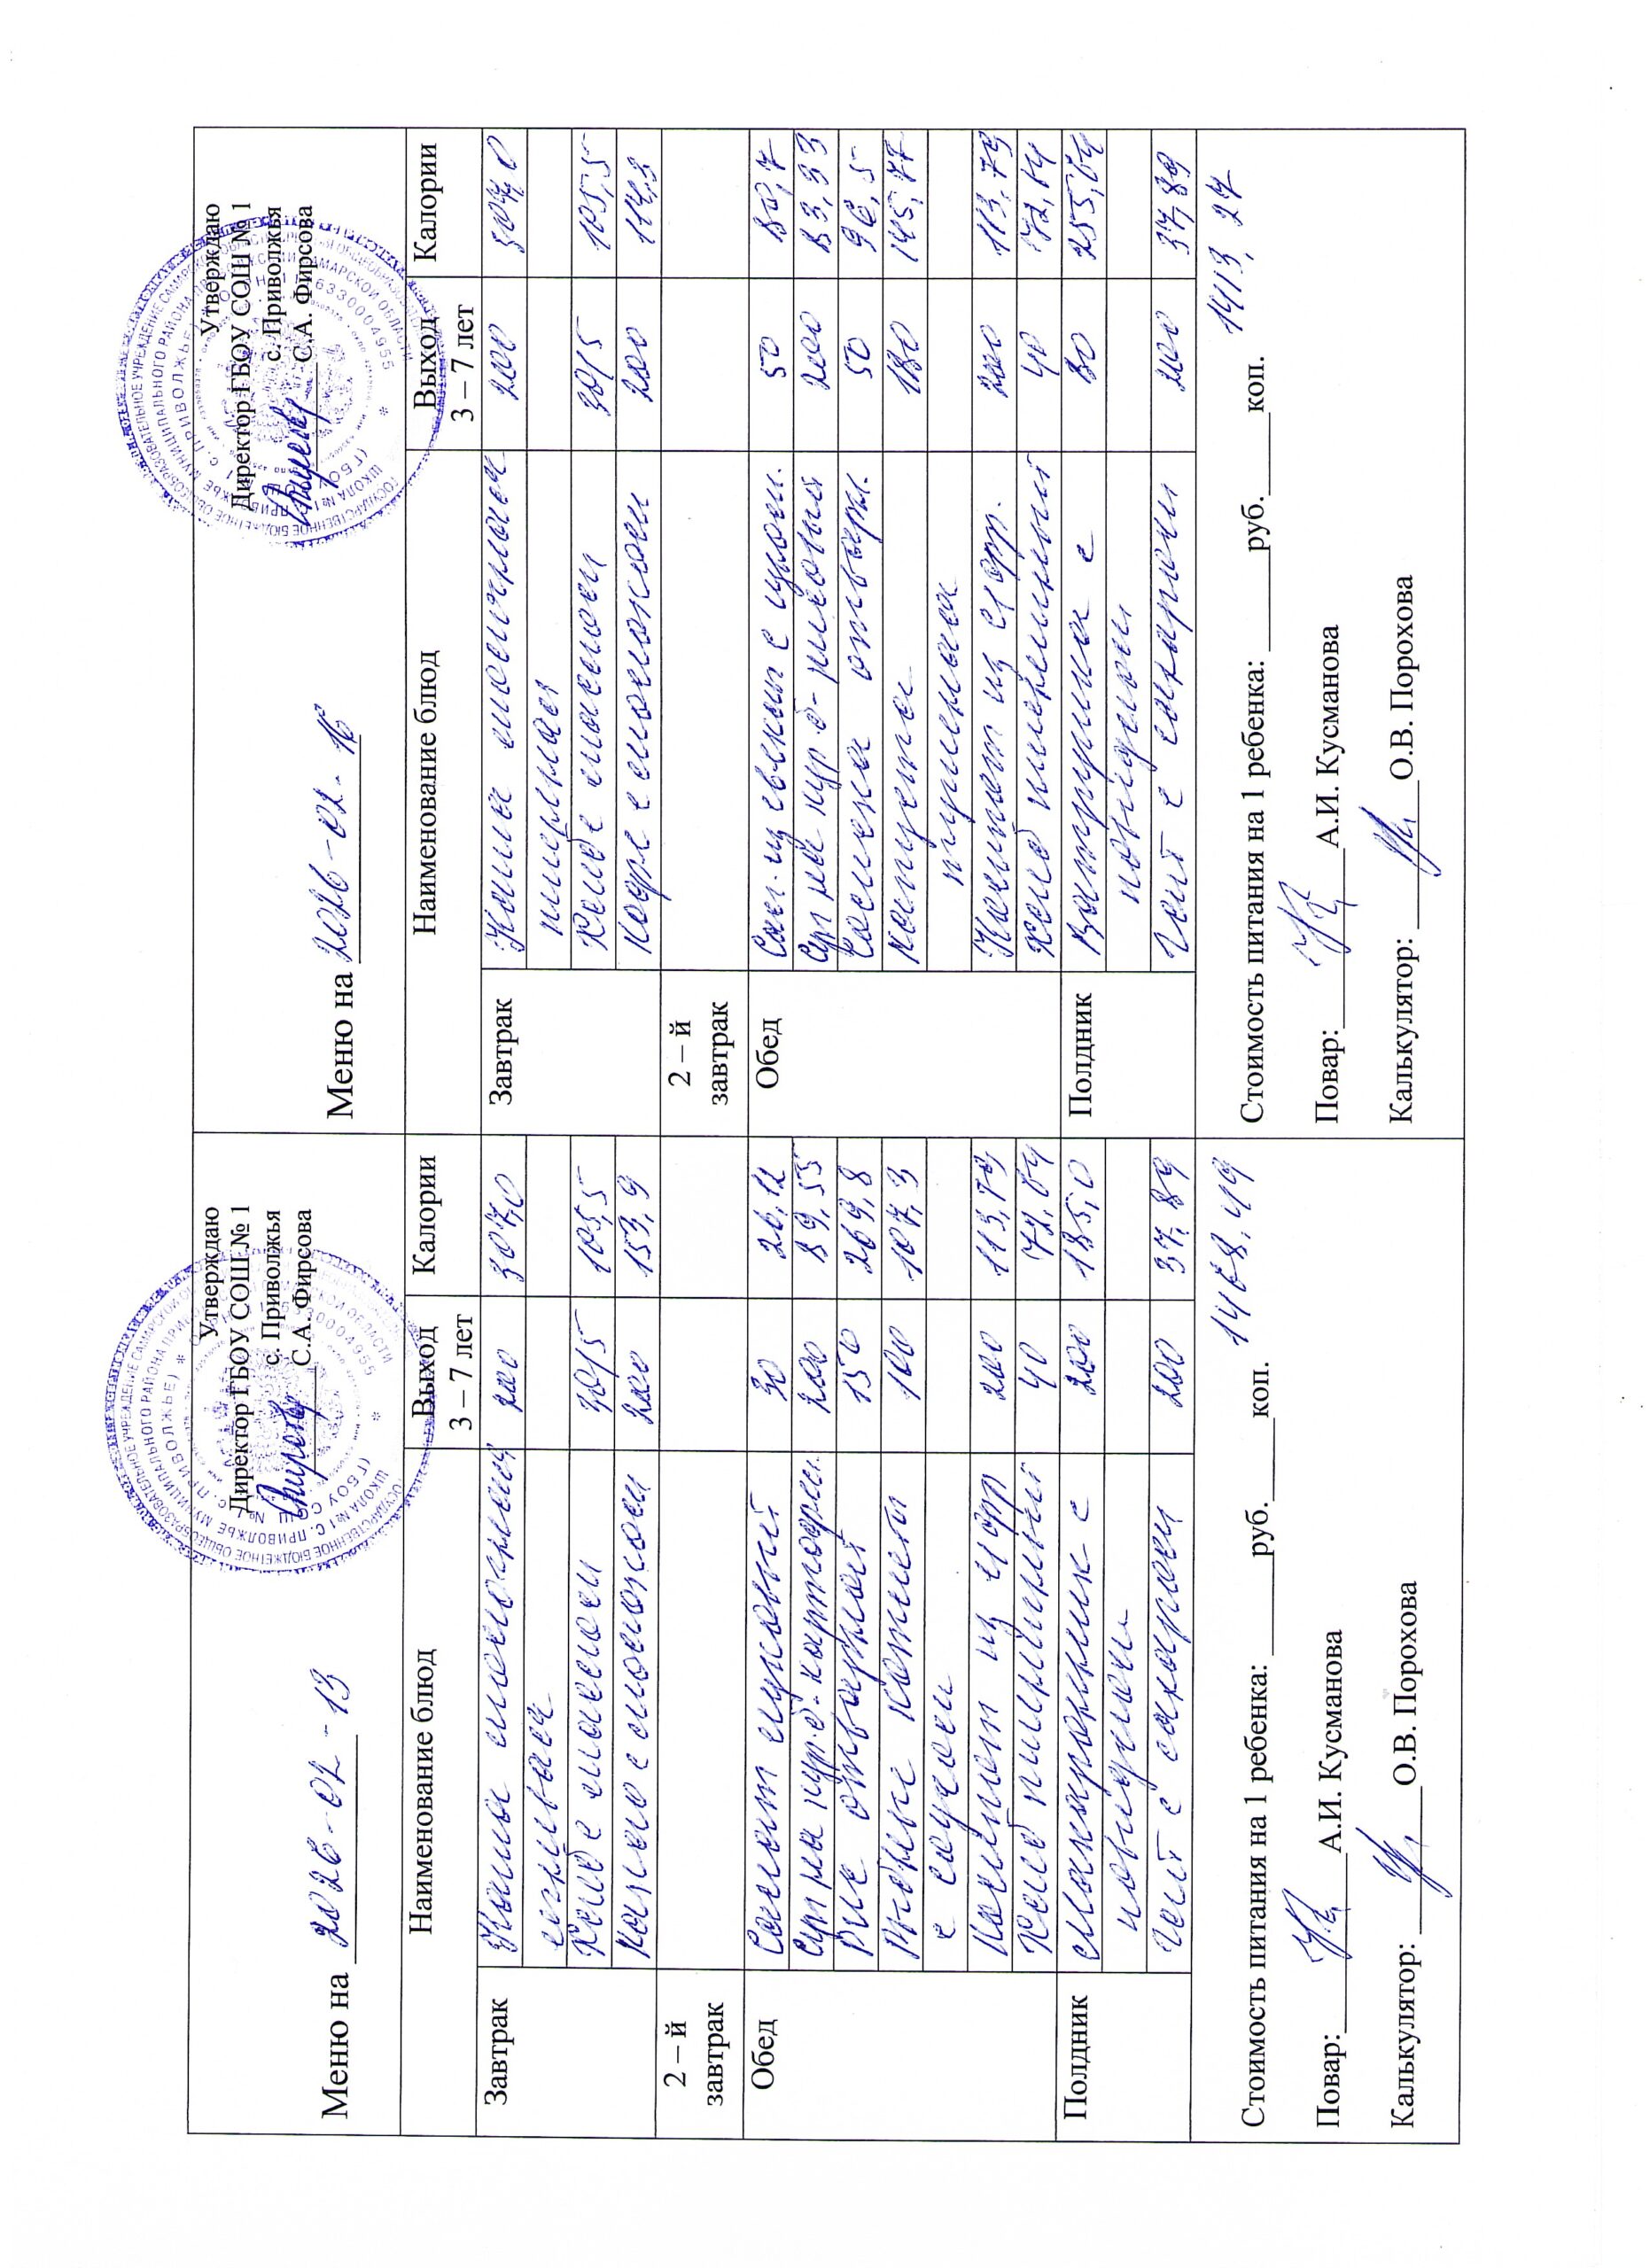 Утверждаю
Директор ГБОУ СОШ № 1
с. Приволжья
С.А. Фирсова
Меню на 2026-02-13
Наименование блюд
Выход
3 – 7 лет
Калории
Завтрак
Каша молочная 200 307,0
Хлеб с маслом 30/5 105,5
Какао с молоком 200 153,9
2 – й
завтрак
Обед
Салат 30 26,12
Суп на кур.б. картофел. 200 89,55
Рис отварной 150 269,8
Рыбные котлеты 100 107,3
с соусом
Компот из с/фр 200 113,79
Хлеб пшеничный 40 72,64
Полдник
с 200 185,0
повидлом
Чай с сахаром 200 37,89
Стоимость питания на 1 ребенка: руб. коп. 1468,49
Повар: А.И. Кусманова
Калькулятор: О.В. Порохова
Утверждаю
Директор ГБОУ СОШ № 1
с. Приволжья
С.А. Фирсова
Меню на 2026-02-16
Наименование блюд
Выход
3 – 7 лет
Калории
Завтрак
Каша молочная 200 307,0
Хлеб с маслом 30/5 105,5
Кофе с молоком 200 114,3
2 – й
завтрак
Обед
Сал. из свеклы с 50 80,7
Суп на кур.б- рисовый 200 83,33
Сосиска отварн. 50 96,5
Капуста 180 145,77
тушеная
Компот из с/фр. 200 113,79
Хлеб пшеничный 40 72,64
Полдник
Ватрушка с 80 255,64
повидлом
Чай с сахаром 200 37,89
Стоимость питания на 1 ребенка: руб. коп. 1413,27
Повар: А.И. Кусманова
Калькулятор: О.В. Порохова